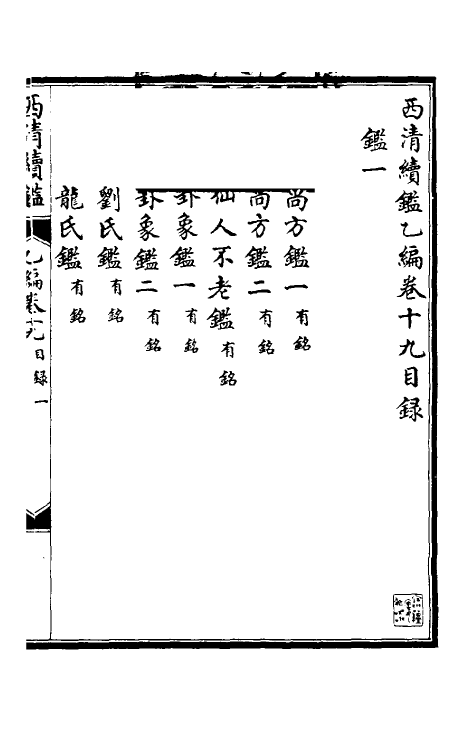 西清續鑑乙編卷十九目録
鑑一
尚方鑑一 有銘
尚方鑑二 有銘
仙人不老鑑 有銘
卦象鑑一 有銘
卦象鑑二 有銘
劉氏鑑 有銘
龍氏鑑 有銘
西清續鑑 乙編卷十九 目録 一